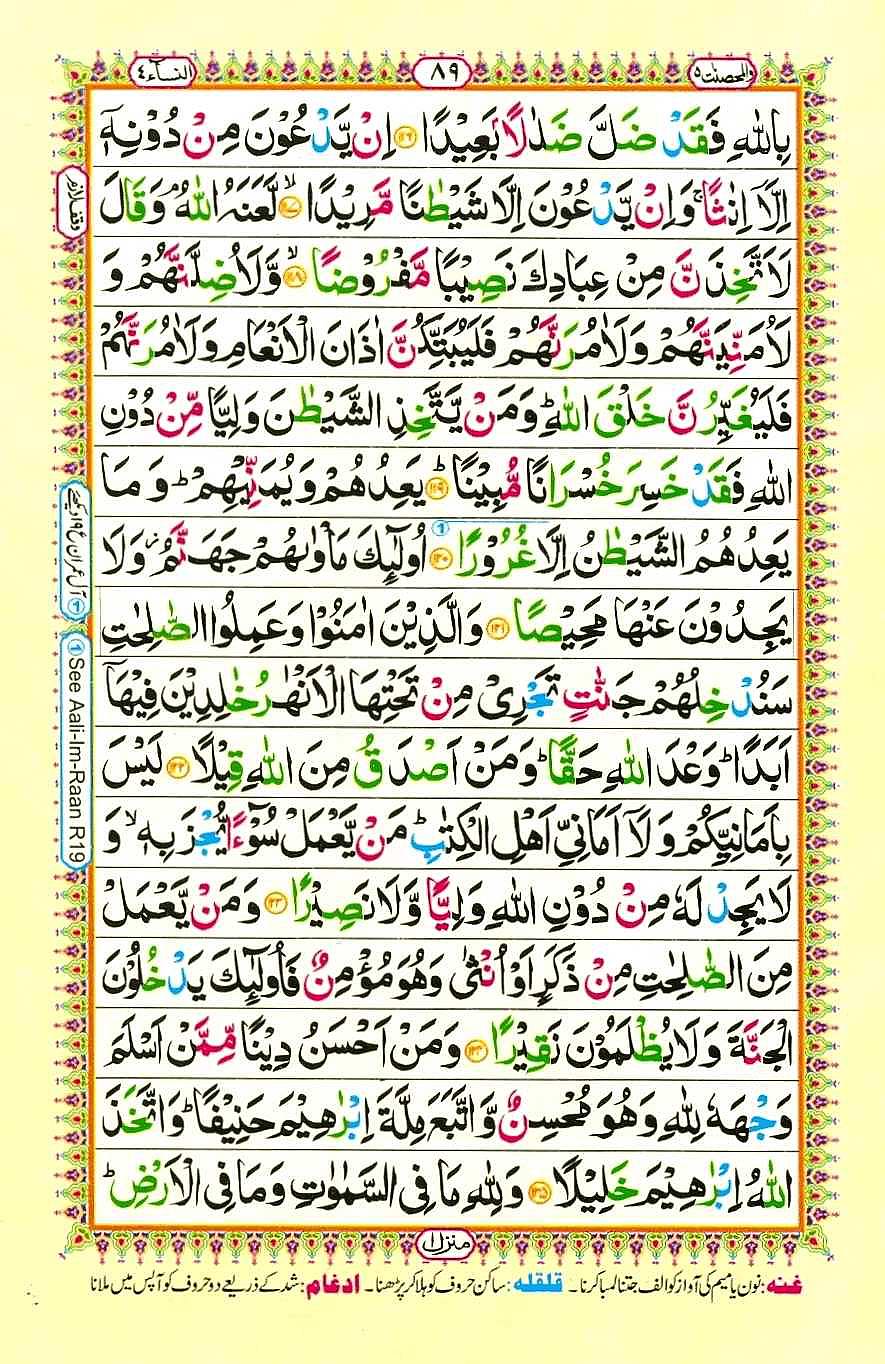 والمحصنت ٥
٨٩
النسآء ٤
بِاللّٰهِ فَقَدْ ضَلَّ ضَلٰلًاۢ بَعِيْدًا ۝١١٦ اِنْ يَّدْعُوْنَ مِنْ دُوْنِهٖۤ
اِلَّاۤ اِنٰثًا ۚ وَاِنْ يَّدْعُوْنَ اِلَّا شَيْطٰنًا مَّرِيْدًا ۝١١٧ ۙ لَّعَنَهُ اللّٰهُ ۘ وَقَالَ
وقف لازم
لَاَتَّخِذَنَّ مِنْ عِبَادِكَ نَصِيْبًا مَّفْرُوْضًا ۝١١٨ ۙ وَّلَاُضِلَّنَّهُمْ وَ
لَاُمَنِّيَنَّهُمْ وَلَاٰمُرَنَّهُمْ فَلَيُبَتِّكُنَّ اٰذَانَ الْاَنْعَامِ وَلَاٰمُرَنَّهُمْ
فَلَيُغَيِّرُنَّ خَلْقَ اللّٰهِ ؕ وَمَنْ يَّتَّخِذِ الشَّيْطٰنَ وَلِيًّا مِّنْ دُوْنِ
اللّٰهِ فَقَدْ خَسِرَ خُسْرَانًا مُّبِيْنًا ۝١١٩ ؕ يَعِدُهُمْ وَيُمَنِّيْهِمْ ؕ وَمَا
يَعِدُهُمُ الشَّيْطٰنُ اِلَّا غُرُوْرًا ۝١٢٠ ① اُولٰٓئِكَ مَاْوٰىهُمْ جَهَنَّمُ ز وَلَا
يَجِدُوْنَ عَنْهَا مَحِيْصًا ۝١٢١ وَالَّذِيْنَ اٰمَنُوْا وَعَمِلُوا الصّٰلِحٰتِ
سَنُدْخِلُهُمْ جَنّٰتٍ تَجْرِيْ مِنْ تَحْتِهَا الْاَنْهٰرُ خٰلِدِيْنَ فِيْهَاۤ
اَبَدًا ؕ وَعْدَ اللّٰهِ حَقًّا ؕ وَمَنْ اَصْدَقُ مِنَ اللّٰهِ قِيْلًا ۝١٢٢ لَيْسَ
بِاَمَانِيِّكُمْ وَلَاۤ اَمَانِيِّ اَهْلِ الْكِتٰبِ ؕ مَنْ يَّعْمَلْ سُوْٓءًا يُّجْزَ بِهٖ ۙ وَ
لَا يَجِدْ لَهٗ مِنْ دُوْنِ اللّٰهِ وَلِيًّا وَّلَا نَصِيْرًا ۝١٢٣ وَمَنْ يَّعْمَلْ
مِنَ الصّٰلِحٰتِ مِنْ ذَكَرٍ اَوْ اُنْثٰى وَهُوَ مُؤْمِنٌ فَاُولٰٓئِكَ يَدْخُلُوْنَ
الْجَنَّةَ وَلَا يُظْلَمُوْنَ نَقِيْرًا ۝١٢٤ وَمَنْ اَحْسَنُ دِيْنًا مِّمَّنْ اَسْلَمَ
وَجْهَهٗ لِلّٰهِ وَهُوَ مُحْسِنٌ وَّاتَّبَعَ مِلَّةَ اِبْرٰهِيْمَ حَنِيْفًا ؕ وَاتَّخَذَ
اللّٰهُ اِبْرٰهِيْمَ خَلِيْلًا ۝١٢٥ وَلِلّٰهِ مَا فِي السَّمٰوٰتِ وَمَا فِي الْاَرْضِ ؕ
① آل عمران ع ١٩ دیکھئے
① See Aali-Im-Raan R19
منزل ١
غنہ : نون یا میم کی آواز کو الف جتنا لمبا کرنا ۔ قلقلہ : ساکن حروف کو ہلا کر پڑھنا ۔ ادغام : شد کے ذریعے دو حروف کو آپس میں ملانا